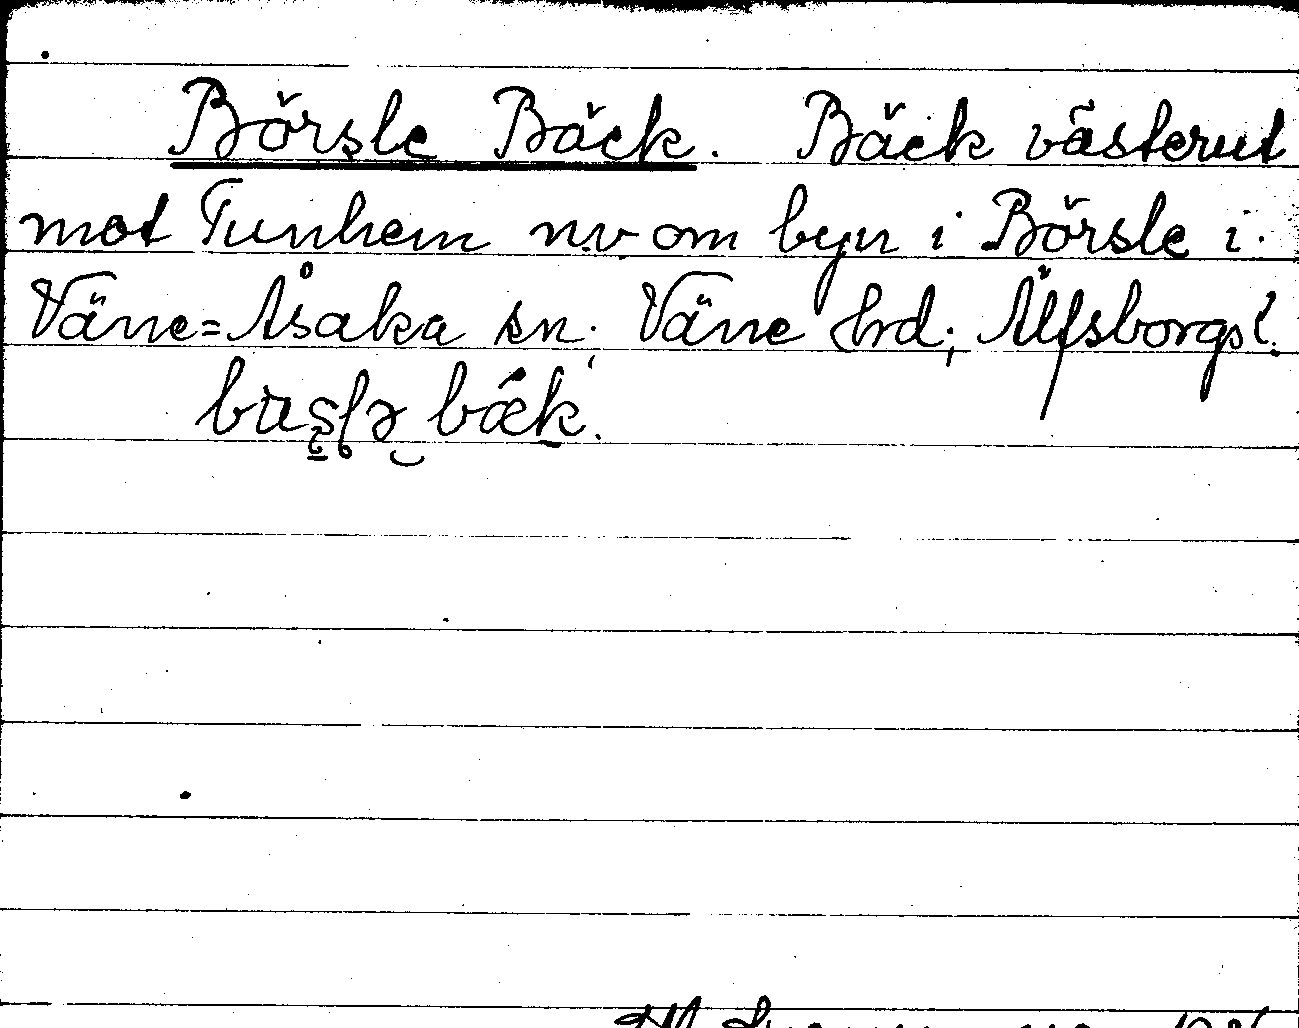 Börsle Bäck. Bäck västerut
mot Tunhem n.v om byn i Börsle i.
Väne=Åsaka sn; Väne hrd; Älfsborgs l.
bäk.